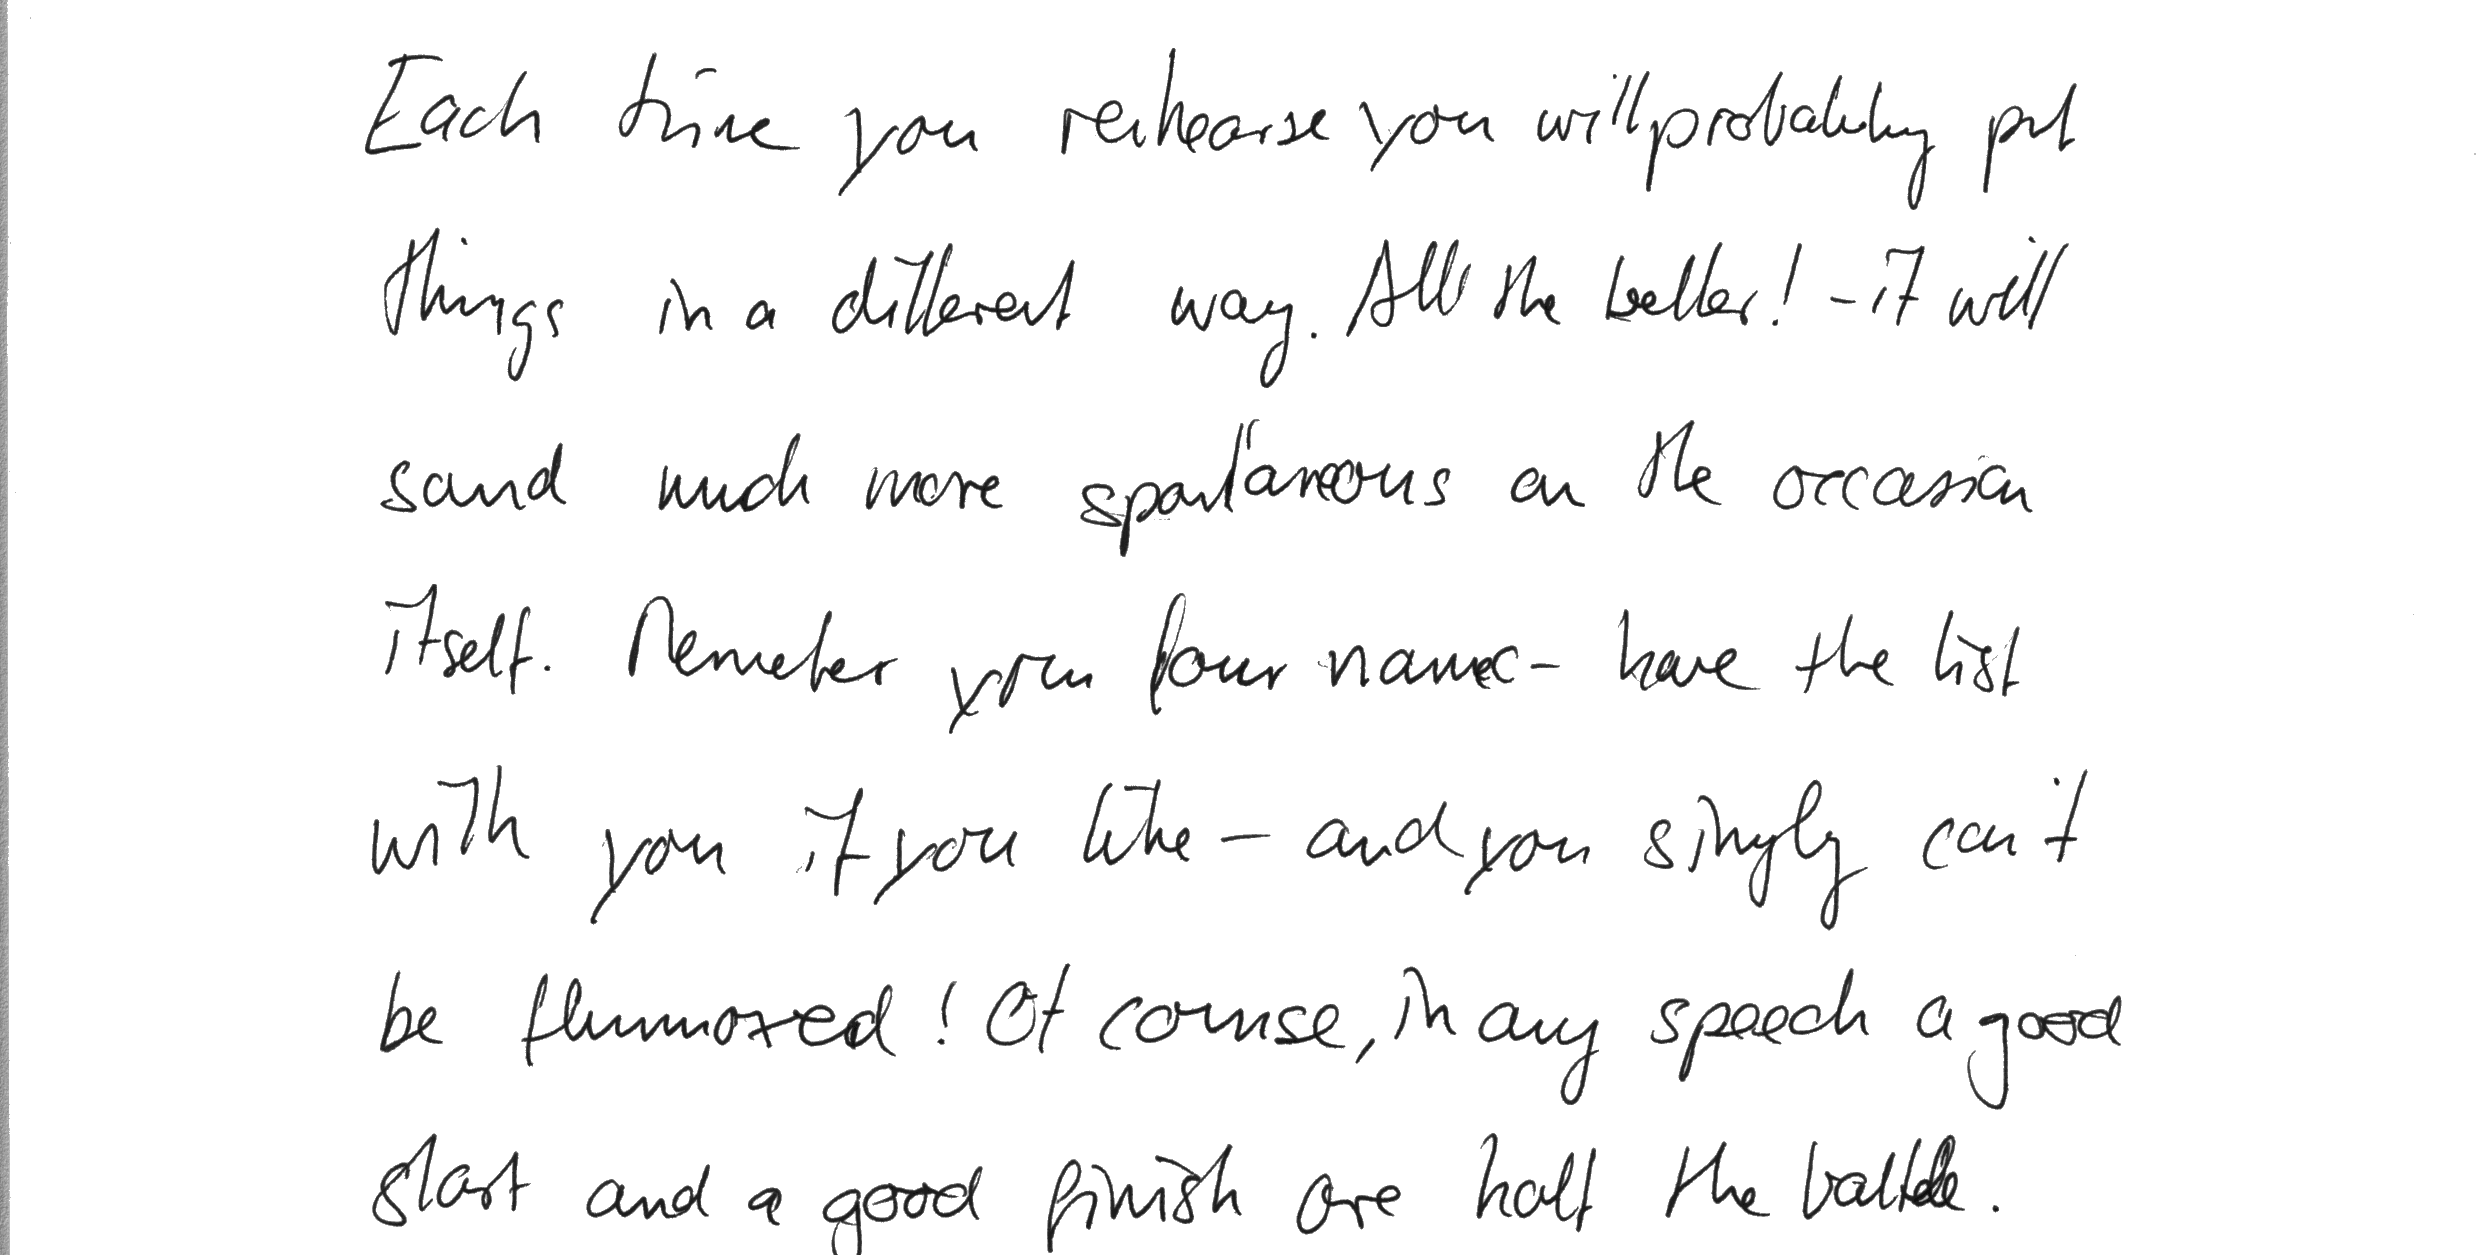 Each time you rehearse you will probably put
things in a different way. All the better! - it will
sound much more spontaneous on the occasion
itself. Remeber your four names - have the list
with you if you like - and you simply can't
be flummoxed! Of course, in any speech a good
start and a good finish are half the battle.